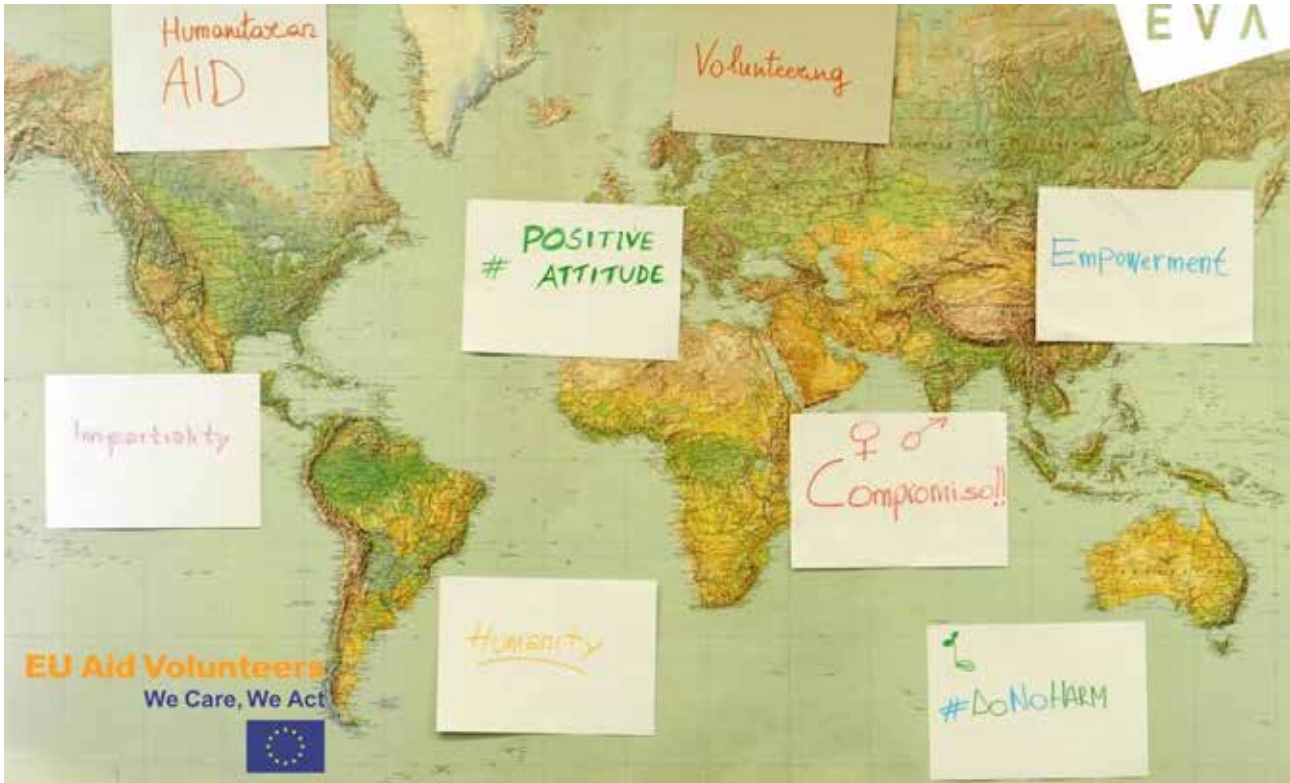 Humanitarian
AID
Volunteering
EVA
# POSITIVE
ATTITUDE
Empowerment
Impartiality
♀ ♂
Compromiso!!
Humanity
#DoNoHARM
EU Aid Volunteers
We Care, We Act